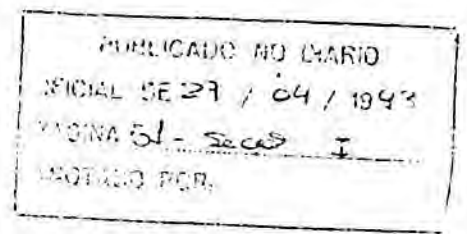 PUBLICADO NO DIARIO
OFICIAL DE 27 / 04 / 1993
PAGINA 51 - Secao I
POR,